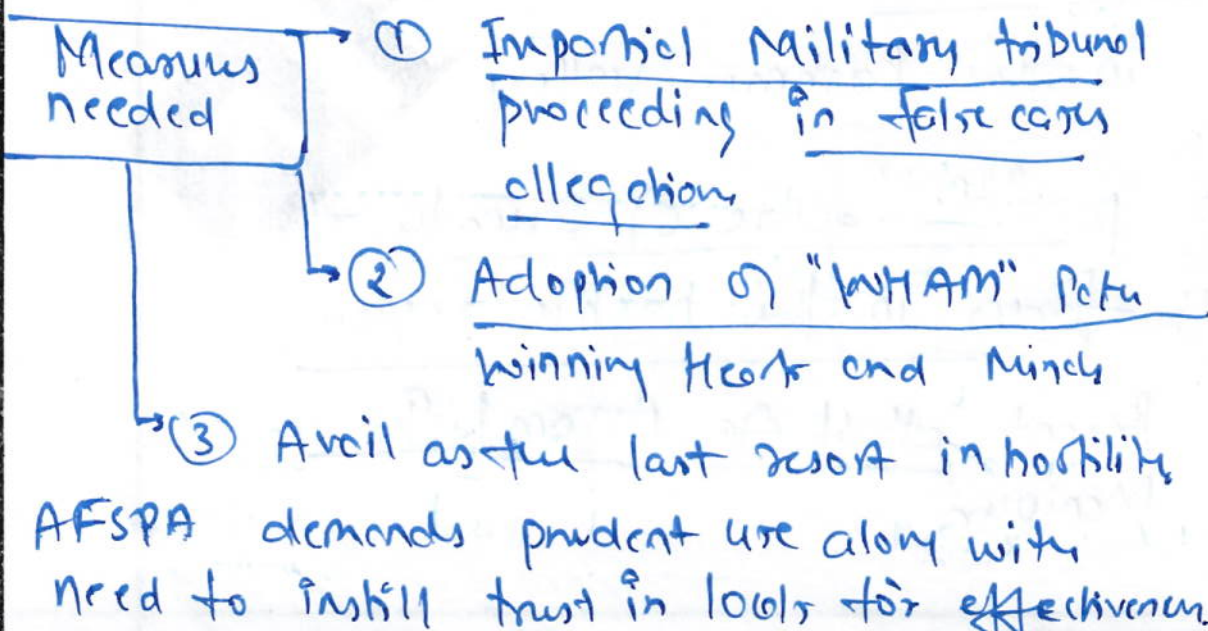 Measures needed
① Impartial Military tribunal
proceeding in false cases
allegations
② Adoption of "WHAM"
Winning Hearts and Minds
③ Avail as the last resort in hostility
AFSPA demands prudent use along with
need to instill trust in locals for effectiveness.